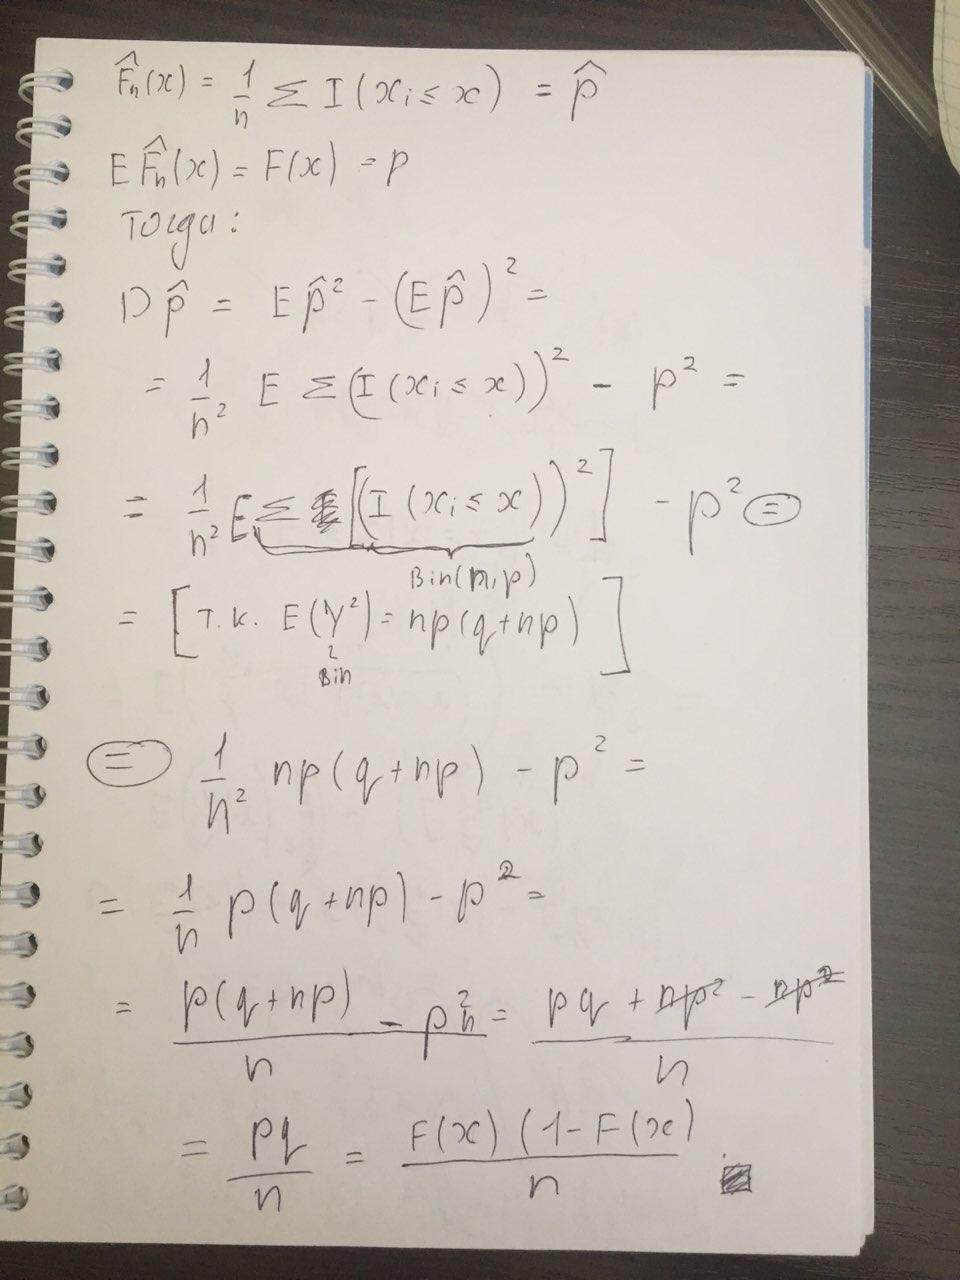 F̂ₙ(x) = 1/n Σ I(xᵢ ≤ x) = p̂
E F̂ₙ(x) = F(x) = p
Тогда:
D p̂ = E p̂² - (E p̂)² =
= 1/n² E Σ(I(xᵢ ≤ x))² - p² =
= 1/n² E Σ [(I(xᵢ ≤ x))²] - p² =
Bin(n, p)
= [т.к. E(Y²) = np(q+np)]
Bin
= 1/n² np(q+np) - p² =
= 1/n p(q+np) - p² =
= (p(q+np) - p²n)/n = (pq + np² - np²)/n
= pq/n = F(x)(1-F(x)/n